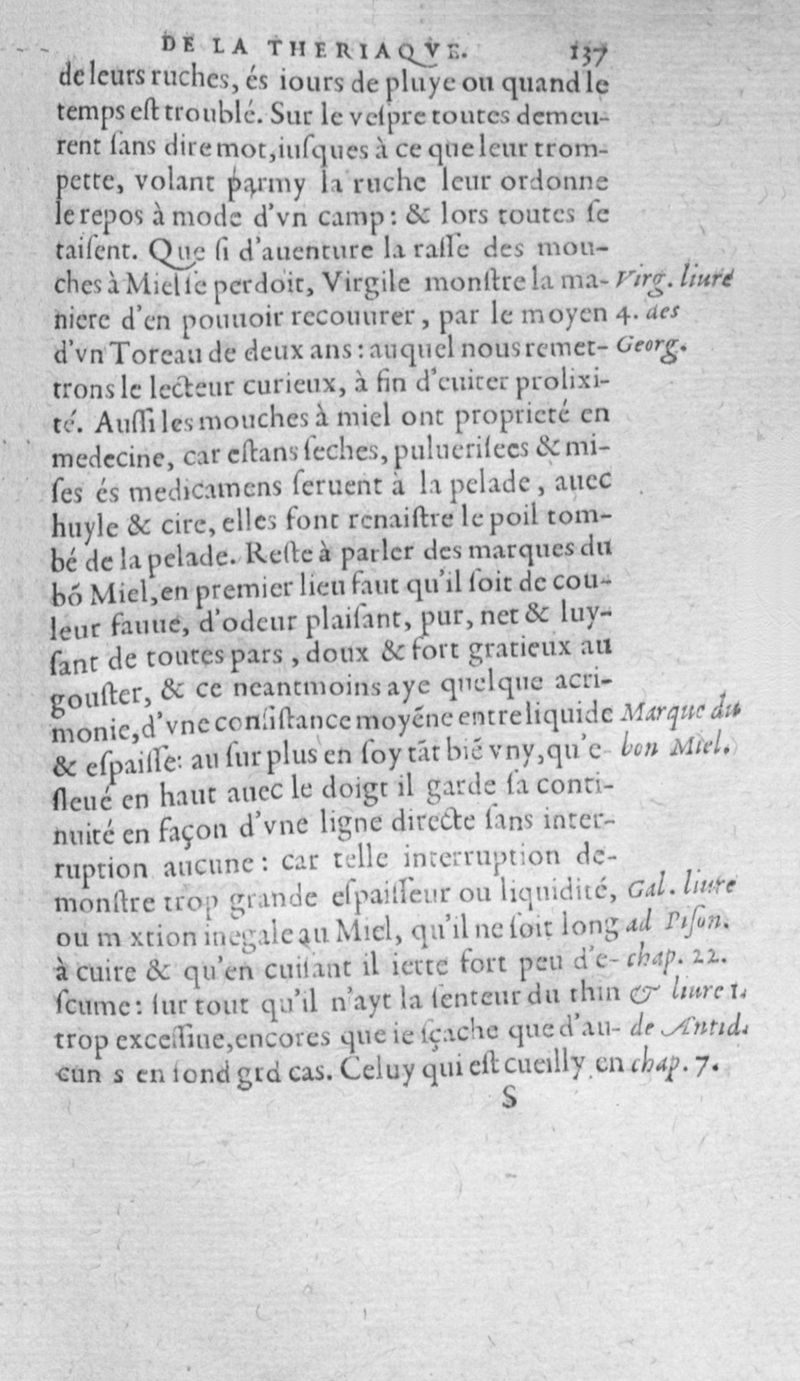 DE LA THERIAQVE. 137
de leurs ruches, és iours de pluye ou quand le
temps est troublé. Sur le vespre toutes demeu-
rent sans dire mot, iusques à ce que leur trom-
pette, volant parmy la ruche leur ordonne
le repos à mode d'vn camp: & lors toutes se
taisent. Que si d'auenture la rasse des mou-
ches à Miel se perdoit, Virgile monstre la ma- Virg. liure
niere d'en pouuoir recouurer, par le moyen 4. des
d'vn Toreau de deux ans: auquel nous remet- Georg.
trons le lecteur curieux, à fin d'euiter prolixi-
té. Aussi les mouches à miel ont proprieté en
medecine, car estans seches, puluerisees & mi-
ses és medicamens seruent à la pelade, auec
huyle & cire, elles font renaistre le poil tom-
bé de la pelade. Reste à parler des marques du
bõ Miel, en premier lieu faut qu'il soit de cou-
leur fauue, d'odeur plaisant, pur, net & luy-
sant de toutes pars, doux & fort gratieux au
gouster, & ce neantmoins aye quelque acri-
monie, d'vne consistance moyẽne entre liquide Marque du
& espaisse: au surplus en soy tãt biẽ vny, qu'e- bon Miel.
sleué en haut auec le doigt il garde sa conti-
nuité en façon d'vne ligne directe sans inter-
ruption aucune: car telle interruption de-
monstre trop grande espaisseur ou liquidité, Gal. liure
ou m xtion inegale au Miel, qu'il ne soit long ad Pison.
à cuire & qu'en cuisant il iette fort peu d'e- chap. 22.
scume: sur tout qu'il n'ayt la senteur du thin & liure 1.
trop excessiue, encores que ie sçache que d'au- de Antid.
cun s en font grd cas. Celuy qui est cueilly en chap. 7.
S